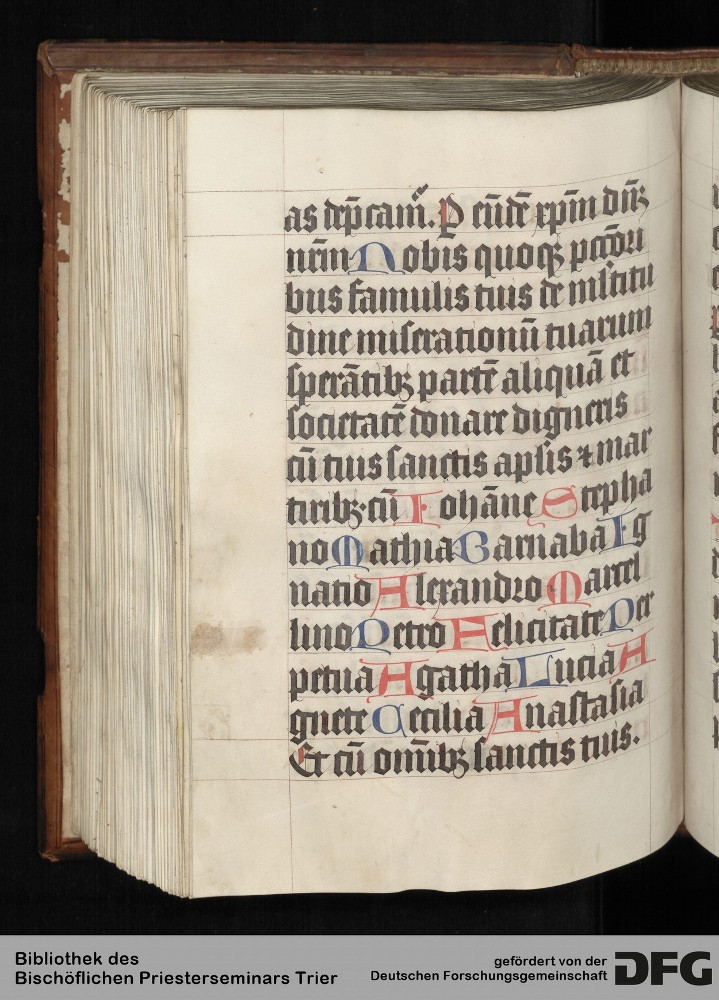 as dep̄cam̄. P eūdē xp̄m dn̄ꝫ
nr̄m Nobis quoqꝫ pctōri
bus famulis tuis de mltitu
dine miserationū tuarum
sperātibꝫ partē aliquā et
societatē donare digneris
cū tuis sanctis apl̄is ⁊ mar
tiribꝫ cū Iohāne Stepha
no Mathia Barnaba Ig
natio Alexandro Marcel
lino Petro Felicitate Per
petua Agatha Lucia A
gnete Cecilia Anastasia
Et cū om̄ibꝫ sanctis tuis.
Bibliothek des
Bischöflichen Priesterseminars Trier
gefördert von der
Deutschen Forschungsgemeinschaft
DFG